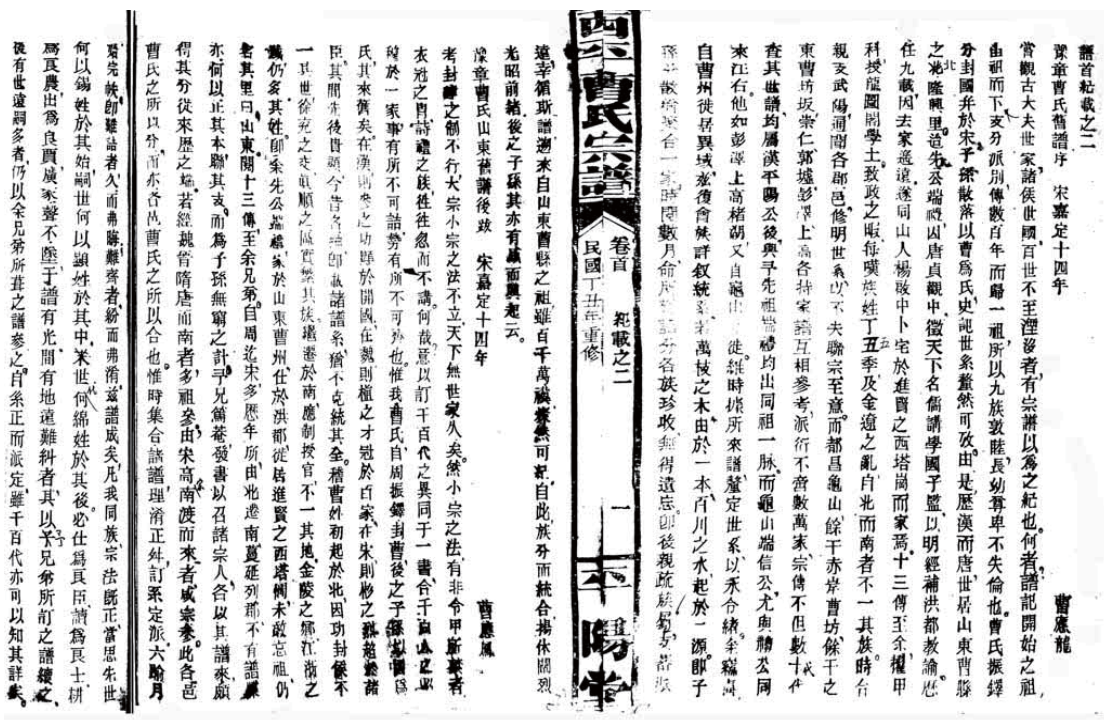 譜首紀載之二
豫章曹氏舊譜序 宋嘉定十四年 曹應龍
嘗觀古大夫世家諸侯世國百世不至湮沒者有宗譜以為之紀也何者譜記開始之祖
由祖而下支分派別傳數百年而歸一祖所以九族敦睦長幼尊卑不失倫也曹氏振鐸
分封國弁於宋子孫散落以曹為氏史記世系釐然可攷由是歷漢而唐世居山東曹縣
之北隆興里造先公端禮因唐貞觀中徵天下名儒講學國子監以明經補洪都教諭歷
任九載因去家適遠遂同山人楊敬中卜宅於進賢之西塔崗而家焉十三傳至余櫂甲
科授龍圖閣學士致政之暇每嘆族姓丁五季及金遼之亂自北而南者不一其族時台
親友武陽南各郡邑修明世系以不失聯宗至意而都昌龜山餘干赤岸曹坊餘干之
東曹坊坂崇仁郭墟彭澤上高各持家譜互相參考派衍不啻數萬家宗傳不但數十代
查其世譜均屬漢平陽公後與予先祖端禮均出同祖一脉而龜山端信公尤與勝公同
來江右他如彭澤上高楮胡又自龜山徙維時據所來譜釐定世系以永合緒余竊
自曹州徙居異域茲復會族詳叙統系若萬枝之木由於一本百川之水起於一源即子
孫合一家時閱數月命分各族珍收無得遺忘即後親疏
遠幸循斯譜溯來自山東曹縣之祖雖百千萬禩燎然可紀自此族分而統合揚休闡烈
光昭前緒後之子孫其亦有感而興起云
豫章曹氏山東舊譜後跋 宋嘉定十四年 曹應鳳
考封建之制不行大宗小宗之法不立天下無世家久矣然小宗之法有非令甲所禁者
衣冠之胄詩禮之族往往忽而不講何哉意以訂千百代之異同于一書合千百人之
於一家事有所不可詰勢有所不可也惟我曹氏自周振鐸封曹後之子孫以國為
氏其來舊矣在漢則參之功顯於開國在魏則植之才冠於百家在宋則彬之超於諸
臣其間先後貴顯今昔名載諸譜系猶不克統其全稽曹姓初起於北因功封後不
一其世徐兗之支順之區實繁其族繼遷於南應制授官不一其地金陵之江浙之
仍多其姓即余先公端禮家於山東曹州仕於洪都徙居進賢之西塔崗未敢忘祖仍
名其里曰山東閱十三傳至余兄弟自周迄宋多歷年所由北遷南蔓延列郡不有譜
亦何以正其本聯其支而為子孫無窮之計乎兄篤菴發書以召諸宗人各以其譜來顧
得其分從來歷之端若經魏晉隋唐而南者多祖參由宋高南渡而來者咸宗彬此各邑
曹氏之所以分而亦各邑曹氏之所以合也惟時集合諸譜理淆正舛訂系定派六閱月
始完帙即難詰者久而弗晦難齊者紛而弗淆茲譜成矣凡我同族宗法既正當思先世
何以錫姓於其始嗣世何以顯姓於其中來世何以綿姓於其後必仕為良臣讀為良士耕
為良農出為良賈庶家聲不墜于譜有光間有地遠難糾者其以予兄弟所訂之譜續之
後有世遠嗣多者仍以余兄弟所葺之譜參之自系正而派定雖千百代亦可以知其詳矣
西平曹氏宗譜
卷首 紀載之二
民國丁丑年重修
一
平陽堂